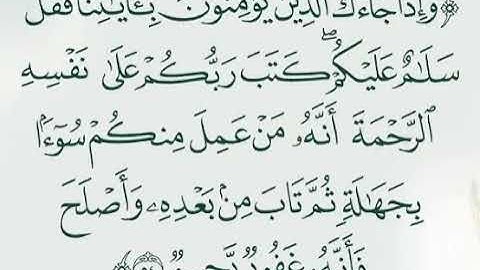 ﴿وَإِذَا جَآءَكَ ٱلَّذِينَ يُؤْمِنُونَ بِـَٔايَـٰتِنَا فَقُلْ
سَلَـٰمٌ عَلَيْكُمْ ۖ كَتَبَ رَبُّكُمْ عَلَىٰ نَفْسِهِ
ٱلرَّحْمَةَ أَنَّهُۥ مَنْ عَمِلَ مِنكُمْ سُوٓءًۢا
بِجَهَـٰلَةٍ ثُمَّ تَابَ مِنۢ بَعْدِهِۦ وَأَصْلَحَ
فَأَنَّهُۥ غَفُورٌ رَّحِيمٌ﴾